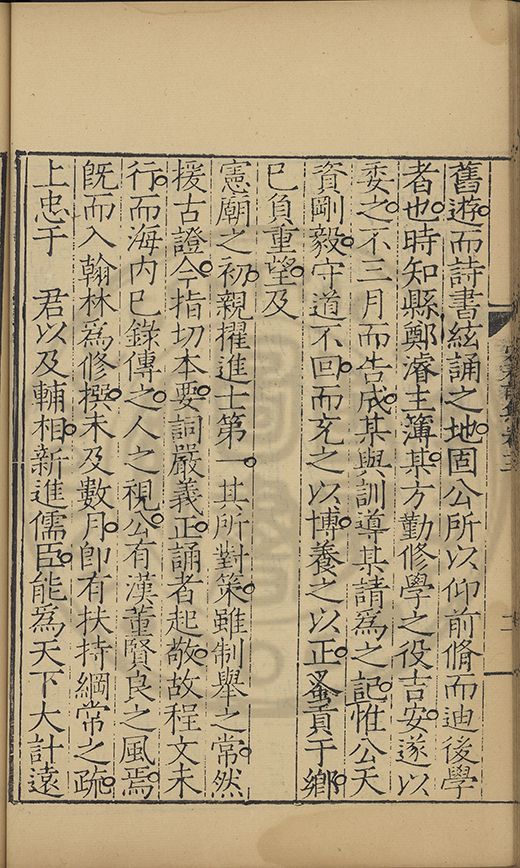 舊遊而詩書絃誦之地固公所以仰前脩而迪後學
者也時知縣鄭濬主簿某方勤修學之役吉安遂以
委之不三月而告成某與訓導某請爲之記惟公天
資剛毅守道不回而充之以博養之以正蚤貢于鄉
已負重望及
憲廟之初親擢進士第一其所對策雖制舉之常然
援古證今指切本要詞嚴義正誦者起敬故程文未
行而海内已錄傳之人之視公有漢董賢良之風焉
旣而入翰林爲修撰未及數月卽有扶持綱常之疏
上忠于　君以及輔相新進儒臣能爲天下大計遠